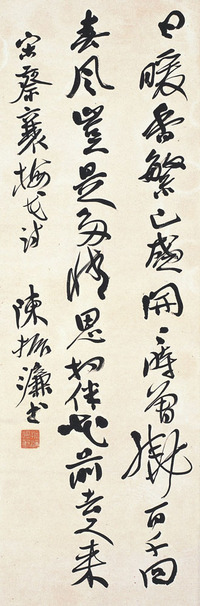 日暖香繁已盛開〻時曾繞百千回
春風豈是多情思相伴花前去又来
宋蔡襄梅花詩 陳振濂書